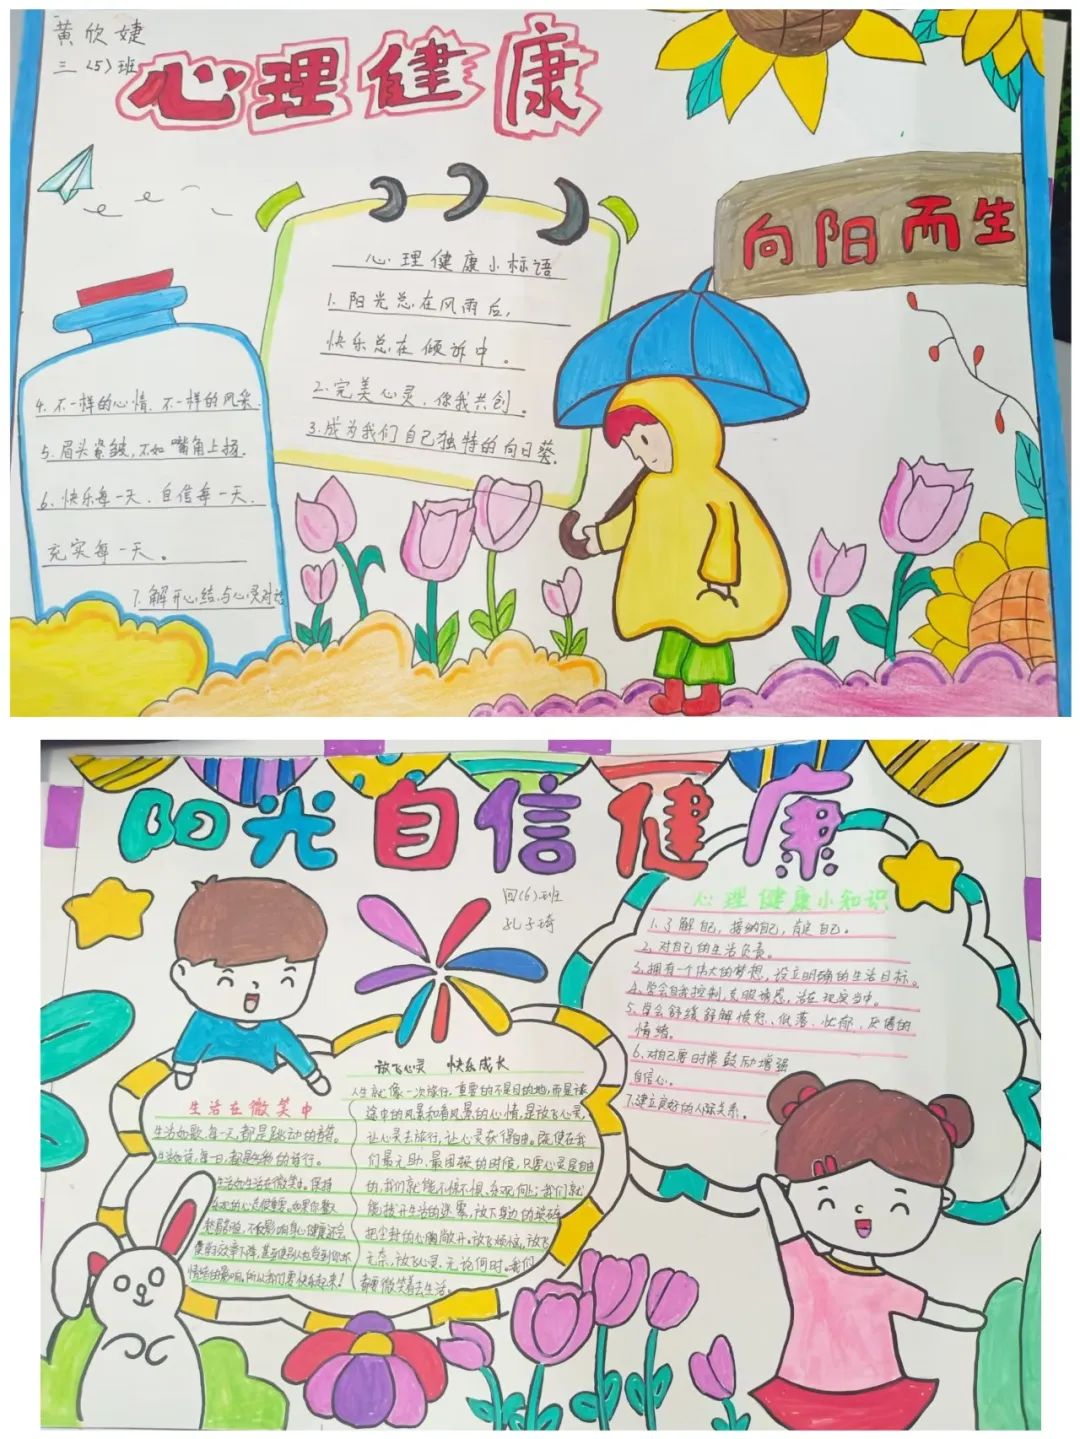 黄欣婕
三（5）班
心理健康
向阳而生
心理健康小标语
1. 阳光总在风雨后，
快乐总在倾诉中。
2. 完美心灵，你我共创。
3. 成为我们自己独特的向日葵。
4. 不一样的心情、不一样的风采.
5. 眉头紧皱，不如嘴角上扬.
6. 快乐每一天、自信每一天、
充实每一天。
7. 解开心结、与心灵对话
阳光自信健康
四(6)班
孔子琦
心理健康小知识
1. 了解自己，接纳自己，肯定自己。
2. 对自己的生活负责。
3. 拥有一个伟大的梦想，设立明确的生活目标。
4. 学会自我控制，克服诱惑，活在现实当中。
5. 学会舒缓排解愤怒、低落、忧郁、厌倦的
情绪。
6. 对自己要时常鼓励增强
自信心。
7. 建立良好的人际关系。
生活在微笑中
生活如歌，每一天，都是跳动的音符。
生活如诗，每一日，都是
生活如生活在微笑中。保持
乐观的心态很重要。如果你整天
愁眉苦脸，不仅影响身心健康还会
使学习效率下降，甚至使别人也受到你坏
情绪的影响，所以我们要快乐起来！
放飞心灵 快乐成长
人生就像一次旅行，重要的不是目的地，而是旅
途中的风景和看风景的心情，是放飞心灵
让心灵去旅行，让心灵获得自由。既使在我
们最无助、最困惑的时候，只要心灵是自由
的，我们就能不惊不惧、乐观向上；我们就
能拨开生活的迷雾，放下身边的琐碎
把尘封的心胸敞开。放飞烦恼，放飞
无奈，放飞心灵。无论何时。我们
都要微笑着去生活。